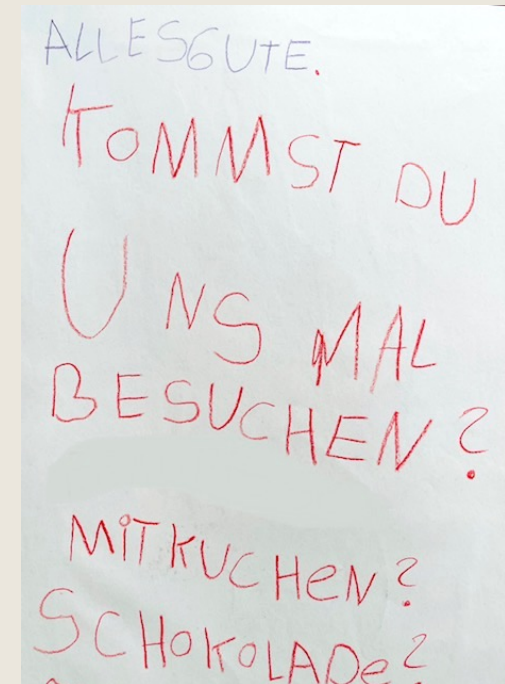 ALLESGUTE.
KOMMST DU
UNS MAL
BESUCHEN?
MiT KUCHeN?
SCHOKOLADe?